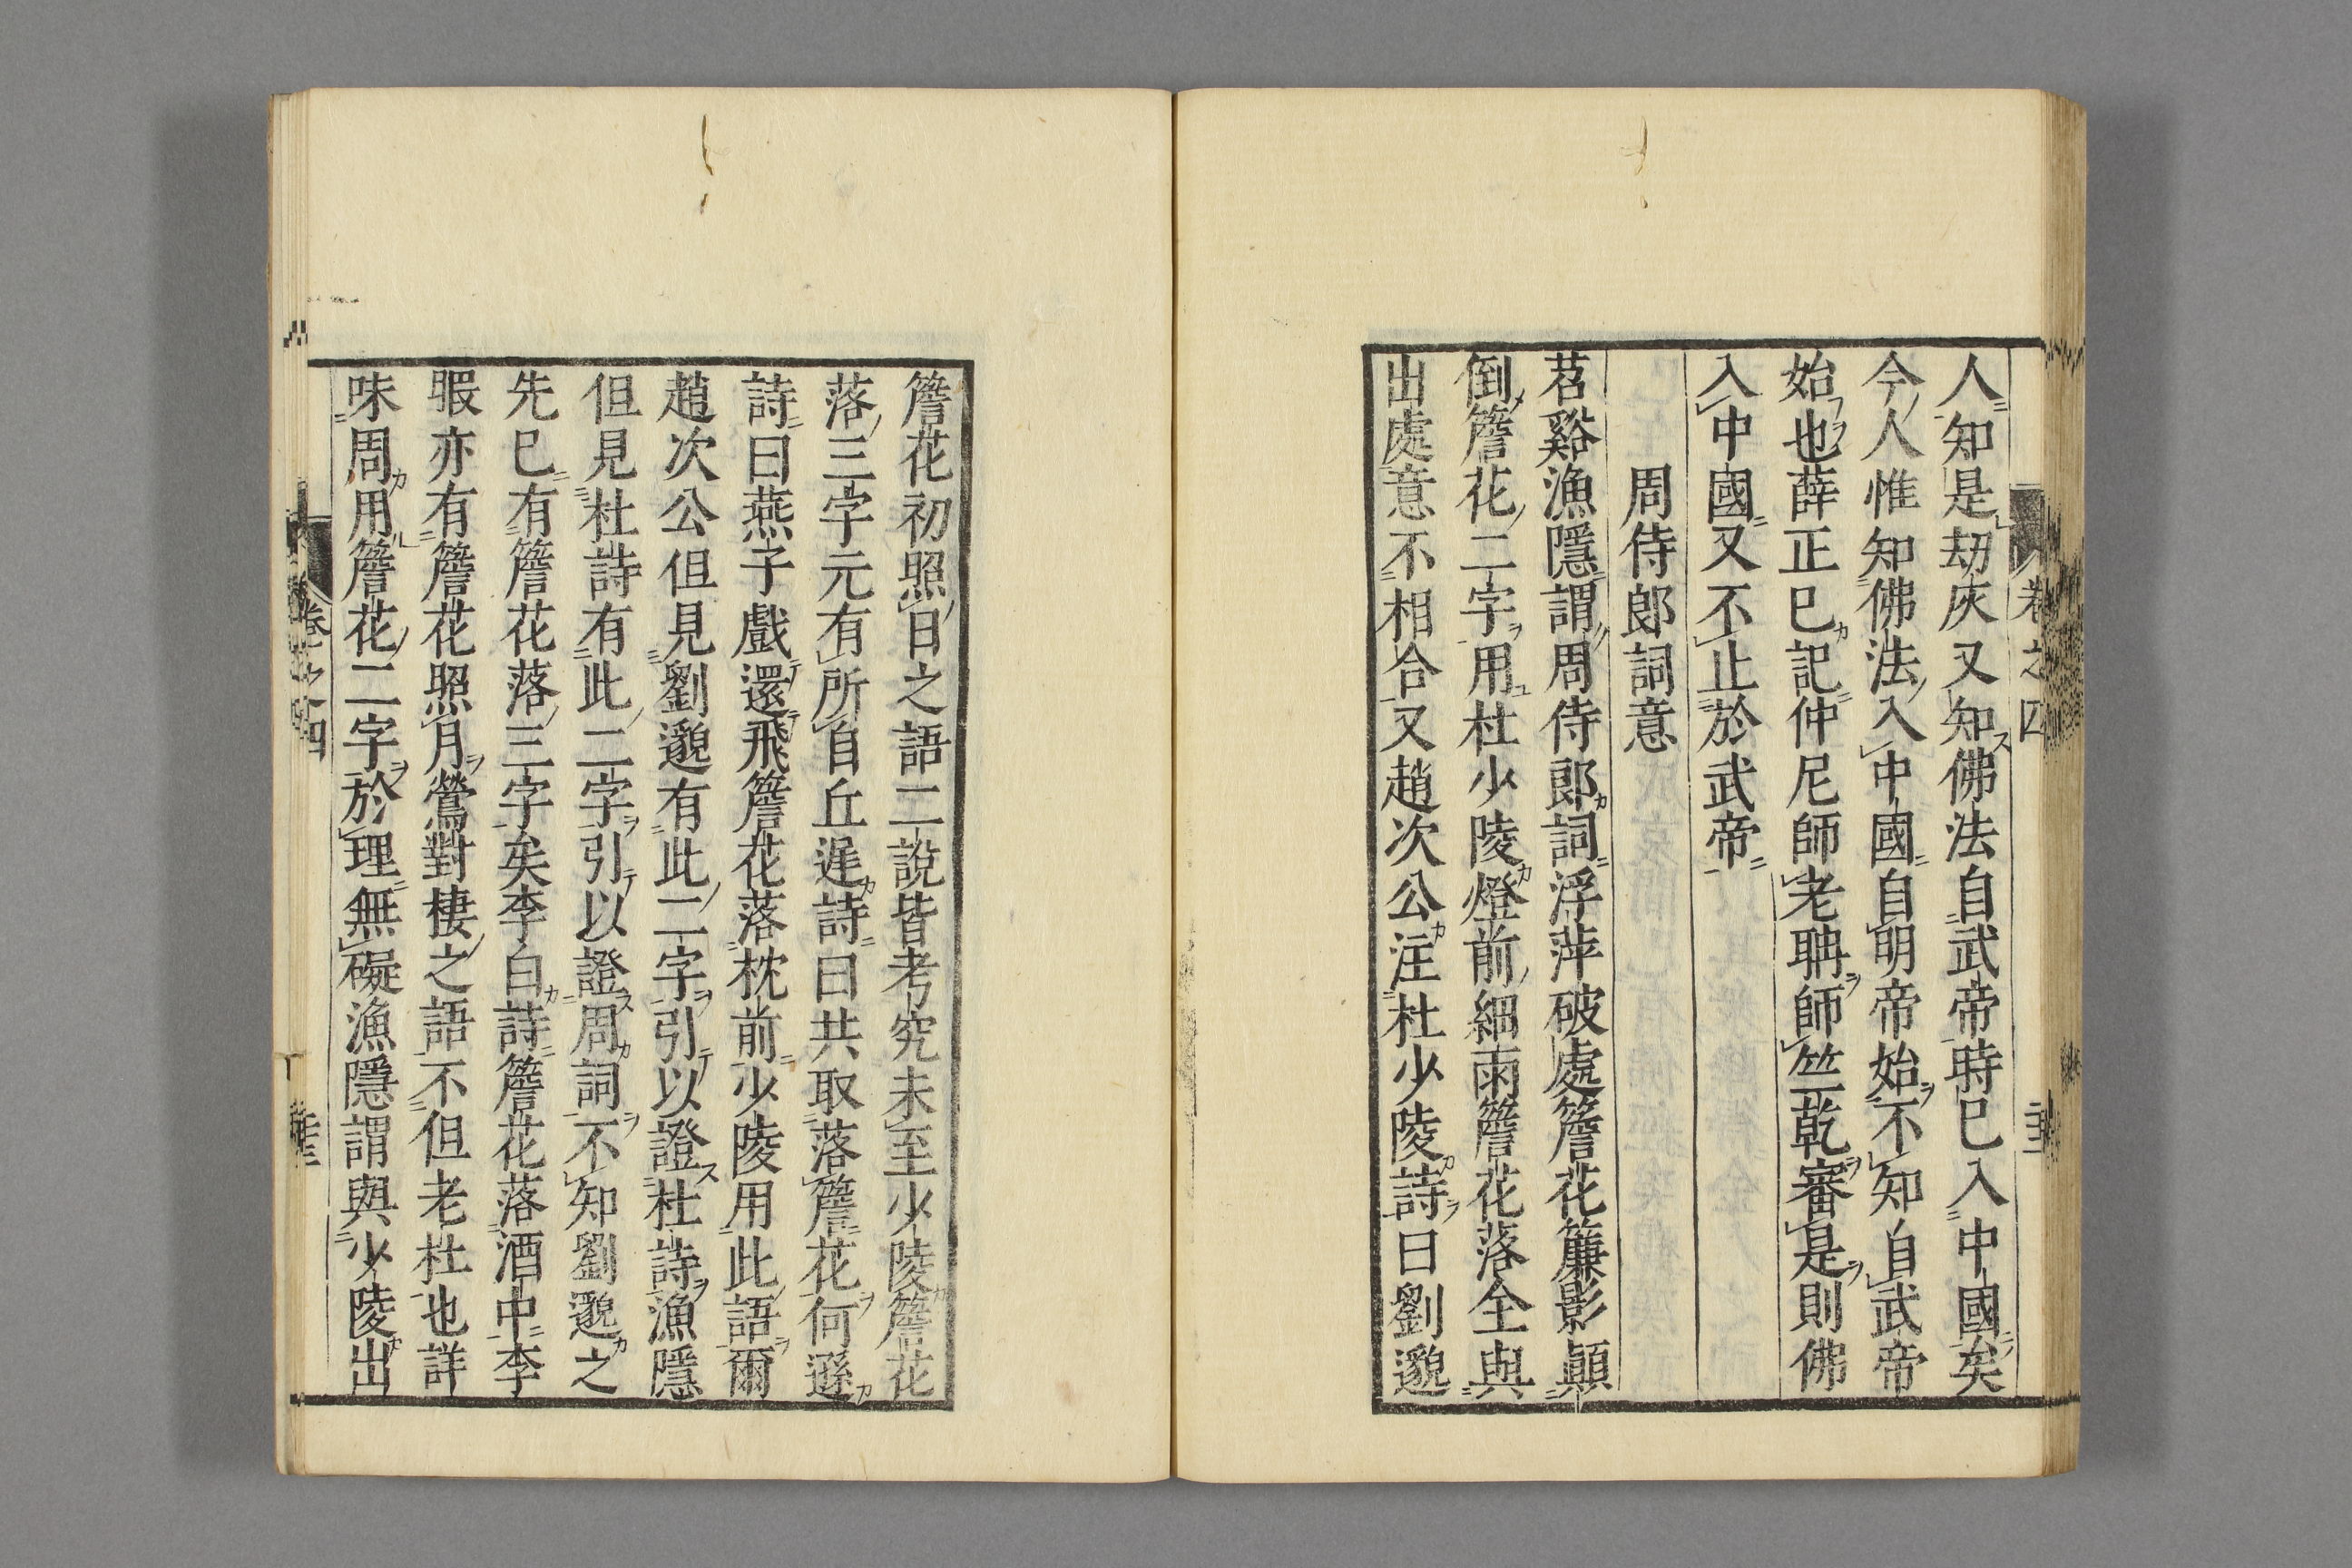 人知是劫灰又知佛法自武帝時已入中國矣
今人惟知佛法入中國自明帝始不知自武帝
始也薛正已記仲尼師老聃師竺乾審是則佛
入中國又不止於武帝
周侍郎詞意
苕谿漁隱謂周侍郎詞浮萍破處簷花簾影顛
倒簷花二字用杜少陵燈前細雨簷花落全與
出處意不相合又趙次公注杜少陵詩曰劉邈
簷花初照日之語二說皆考究未至少陵簷花
落三字元有所自丘遲詩曰共取落簷花何遜
詩曰燕子戲還飛簷花落枕前少陵用此語爾
趙次公但見劉邈有此二字引以證杜詩漁隱
但見杜詩有此二字引以證周詞不知劉邈之
先已有簷花落三字矣李白詩簷花落酒中李
暇亦有簷花照月鶯對棲之語不但老杜也詳
味周用簷花二字於理無礙漁隱謂與少陵出
卷之四
卷之四